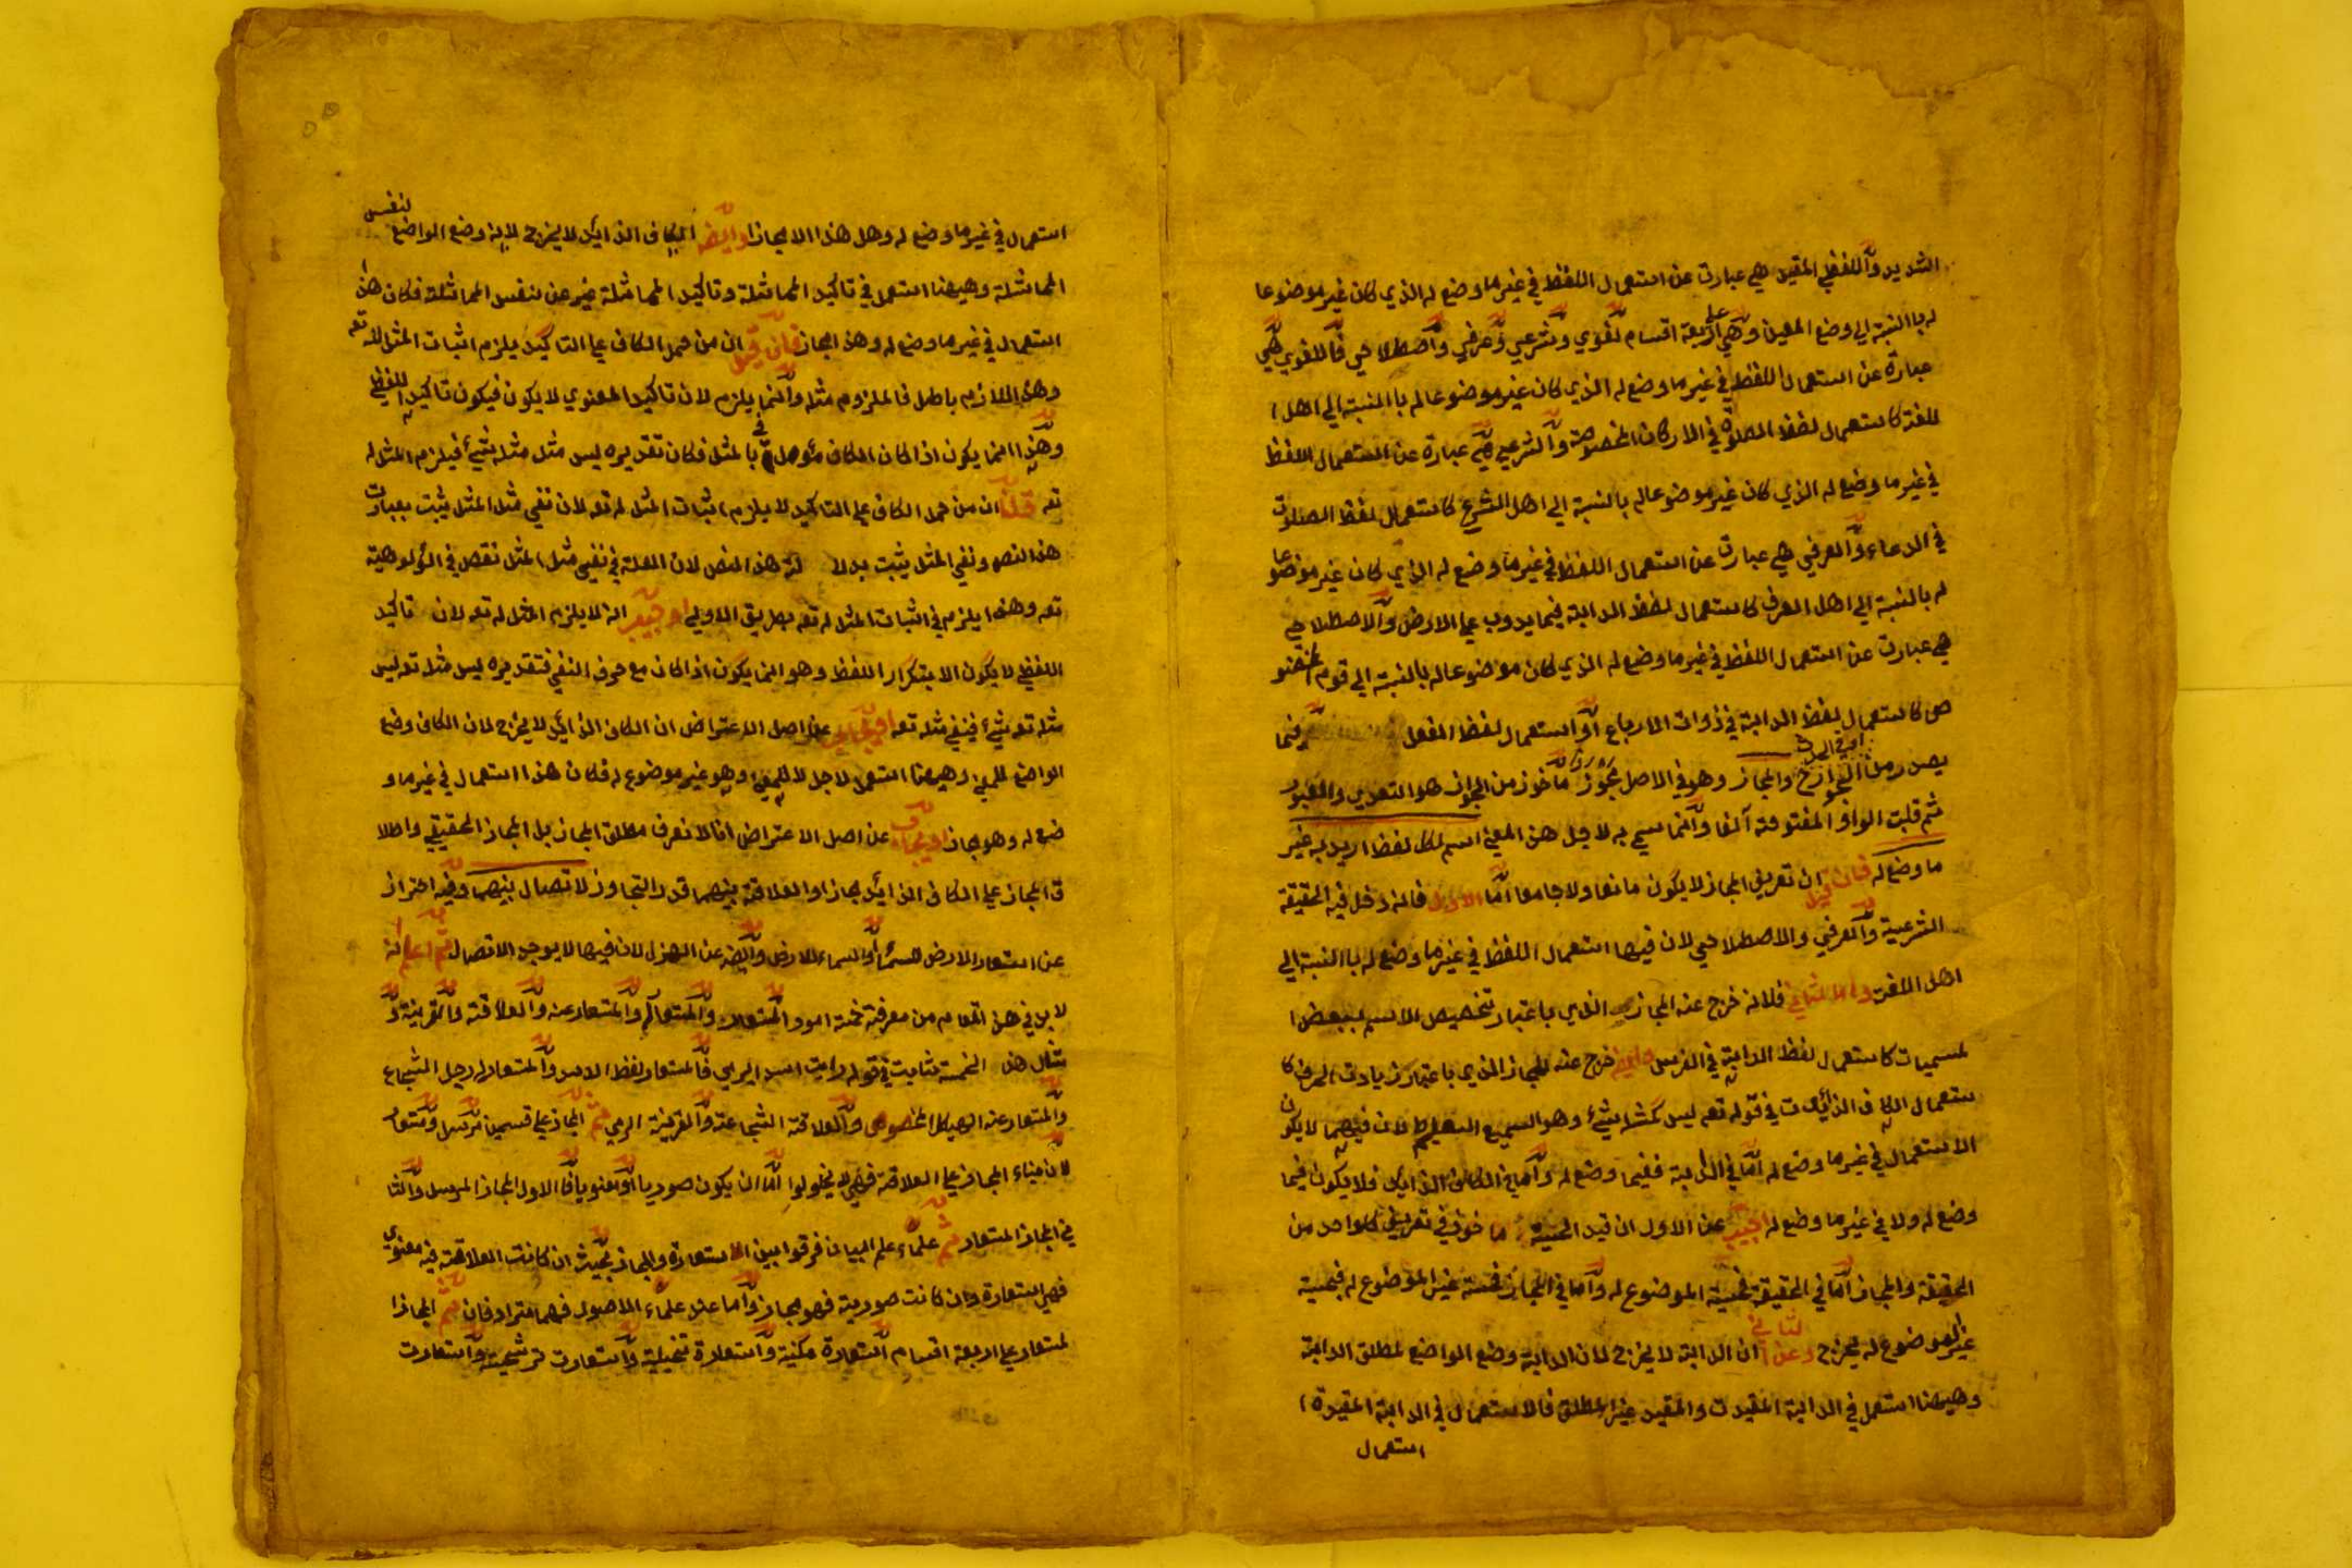 الشديد واللفظي المقيد هي عبارة عن استعمال اللفظ في غير ما وضع له الذي كان غير موضوعا
له با النسبة الي وضع المعين وهي علي اربعة اقسام لغوي وشرعي وعرفي واصطلاحي فاللغوي هي
عبارة عن استعمال اللفظ في غير ما وضع له الذي كان غير موضوعا له با النسبة الي اهل ا
للغة كاستعمال لفظ الصلوة في الاركان المخصوصة والشرعي هي عبارة عن استعمال اللفظ
في غير ما وضع له الذي كان غير موضوعا له بالنسبة الي اهل الشرع كاستعمال لفظ الصلوة
في الدعاء والعرفي هي عبارت عن استعمال اللفظ في غير ما وضع له الذي كان غير موضوعا
له بالنسبة الي اهل العرف كاستعمال لفظ الدابة فيما يدوب علي الارض والاصطلاحي
هي عبارت عن استعمال اللفظ في غير ما وضع له الذي كان موضوعا له بالنسبة الي قوم مخصو
ص كاستعمال لفظ الدابة في ذوات الارباع او استعمال لفظ الفعل فيما
يصدر من الجوارح والمجاز وهو في الاصل مجوز ماخوذ من الجواز هو التعدي والعبور
ثم قلبت الواو المفتوحة الفا وانما سمي به لاجل هذ المعني اسم لكل لفظ اريد به غير
ما وضع له فان قيل ان تعريف المجاز لا يكون مانعا ولا جامعا اما الاول فلانه دخل فيه الحقيقة
الشرعية والعرفي والاصطلاحي لان فيها استعمال اللفظ في غير ما وضع له با النسبة الي
اهل اللغة واما الثاني فلانه خرج عنه المجاز الذي باعتبار تخصيص الاسم ببعض ا
لمسميات كاستعمال لفظ الدابة في الفرس وايضه خرج عنه المجاز الذي باعتبار زيادت الحرف كا
ستعمال الكاف الزائدت في قوله تعه ليس كمثله شيء وهو السميع العليم لان فيهما لا يكون
الاستعمال في غير ما وضع له اما في الدابة ففيما وضع له واما في الكاف الذايد فلا يكون فيما
وضع له ولا في غير ما وضع له اجيب عن الاول ان قيد الحيثية ماخوذ في تعريف كلواحد من
الحقيقة والمجاز اما في الحقيقة فحيثية الموضوع له واما في المجاز فحيثية غير الموضوع له فبحيثية
غير الموضوع له يخرج وعن الثاني ان الدابة لا يخرج لان الدابة وضع الواضع لمطلق الدابة
وهيهنا استعمل في الدابة المقيدت والمقيد غير المطلق فالاستعمال في الدابة المقيدة ا
استعمال
استعمال في غير ما وضع له وهل هذا الا مجازا وايضه الكاف الذايد لا يخرج لانه وضع الواضع لنفس
المماثلة وهيهنا استعمل في تاكيد المماثلة وتاكيد المماثلة غير عن نفس المماثلة فكان هذا
استعمال في غير ما وضع له وهذ المجاز فان قيل ان من حمل الكاف علي التاكيد يلزم اثبات المثل لله تعه
وهذ اللازم باطل فالملزوم مثله وانما يلزم لان تاكيد المعنوي لا يكون فيكون تاكيد اللفظي
وهذا انما يكون اذا كان الكاف مؤول با المثل فكان تقديره ليس مثل مثله شيء فيلزم المثل له
تعه قلنا ان من حمل الكاف علي التاكيد لا يلزم اثبات المثل له تعه لان نفي مثل المثل يثبت بعبارت
هذ النص ونفي المثل يثبت بدلا لة هذ النص لان العلة في نفي مثل المثل نقص في الالوهية
تعه وهذ ايلزم في اثبات المثل له تعه بطريق الاولي او جيب انه لا يلزم المثل له تعه لان تاكيد
اللفظي لا يكون الا بتكرار اللفظ وهو انما يكون اذا كان مع حرف النفي فتقديره ليس مثله تعه ليس
مثله تعه شيء فينفي مثله تعه اويجاب عن اصل الاعتراض ان الكاف الذايد لا يخرج لان الكاف وضع
الواضع للمعني وهيهنا استعمل لاجل لا للمعني وهو غير موضوع له فكان هذا استعمال في غير ما و
ضع له وهو مجاز اويجاب عن اصل الاعتراض انا لا نعرف مطلق المجاز بل المجاز الحقيقي واطلا
ق المجاز علي الكاف الذايد مجازا والعلاقة بينهما قدر التجاوز لاتصال بينهما وفيه احتراز
عن استعار الارض للسماء والسماء للارض وايضه عن الهزل لان فيها لا يوجد الاتصال ثم اعلم انه
لابد في هذ المقام من معرفة خمسة امور المستعار والمستعار له والمستعار عنه والعلاقة والقرينة و
مثال هذ الخمسة ثابت في قوله رايت اسد ايرمي فالمستعار لفظ الاسد والمستعار له رجل الشجاع
والمستعار عنه الهيكل المخصوص والعلاقة الشجاعة والقرينة الرمي ثم المجاز علي قسمين مرسل ومستعار
لان مبناء المجاز علي العلاقة فهي لا يخلوا اما ان يكون صوريا او معنويا فالاول المجاز المرسل والثا
ني المجاز المستعار ثم علماء علم البيان فرقوا بين الاستعارة والمجاز بحيث ان كانت العلاقة فيه معنوي
فهي استعارة وان كانت صورية فهو مجاز واما عند علماء الاصول فهما مترادفان ثم المجاز ا
لمستعار علي اربعة اقسام استعارة مكنية واستعارة تخييلية واستعارت ترشحية واستعارت